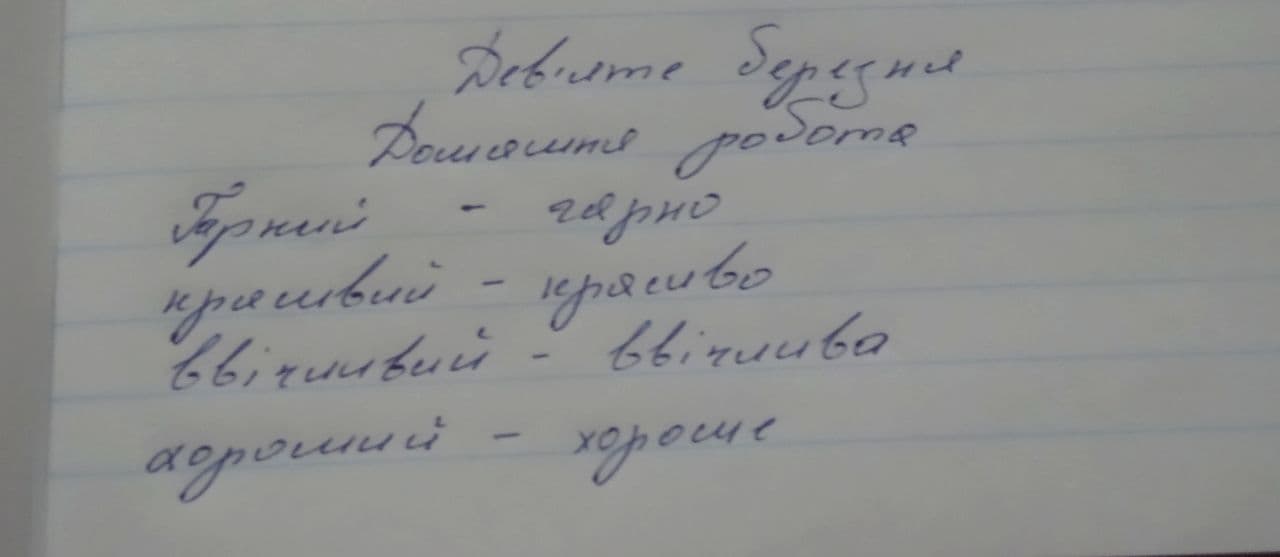 Дев'яте березня
Домашня робота
Гарний - гарно
красивий - красиво
ввічливий - ввічлива
хороший - хороше